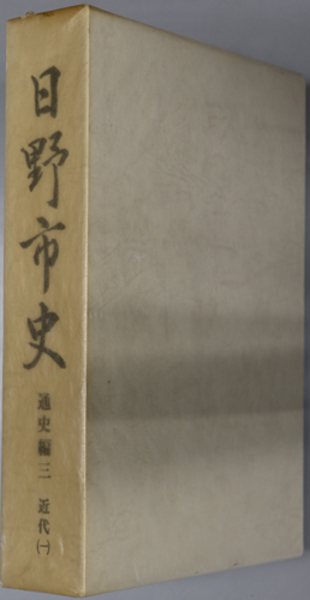 日野市史
通史編三 近代(一)